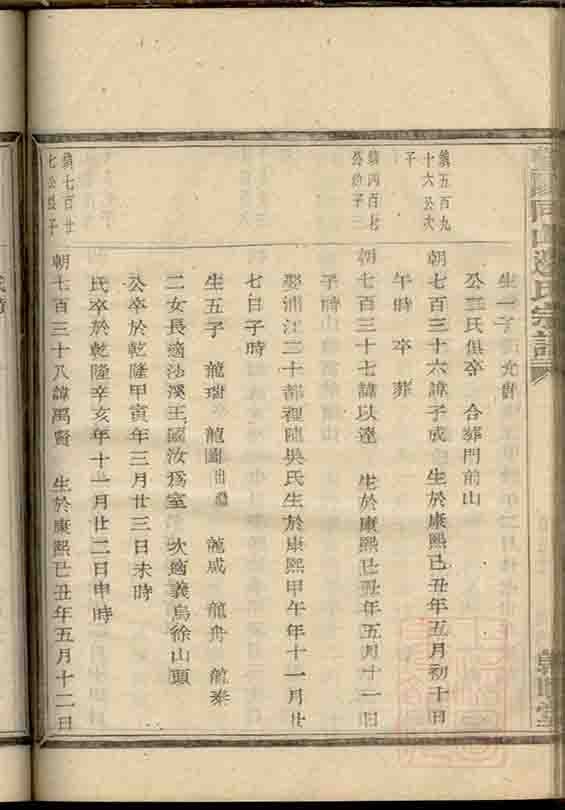 生一子
公三氏俱卒 合葬門前山
鎮五百九
十六公次
子
朝七百三十六諱子成 生於康熙己丑年五月初十日
午時 卒 葬
鎮四百七
公幼子三
朝七百三十七諱以達 生於康熙己丑年五月十一日
子時
娶浦江二十都裡陳吳氏生於康熙甲午年十一月廿
七日子時
生五子 龍瑞 龍圖出繼 龍成 龍舟 龍泰
二女長適沙溪王國汝爲室 次適義烏徐山頭
公卒於乾隆甲寅年三月廿三日未時
氏卒於乾隆辛亥年十一月廿二日申時
鎮七百廿
七公長子
朝七百三十八諱禹賢 生於康熙己丑年五月十二日
同山邊氏宗譜